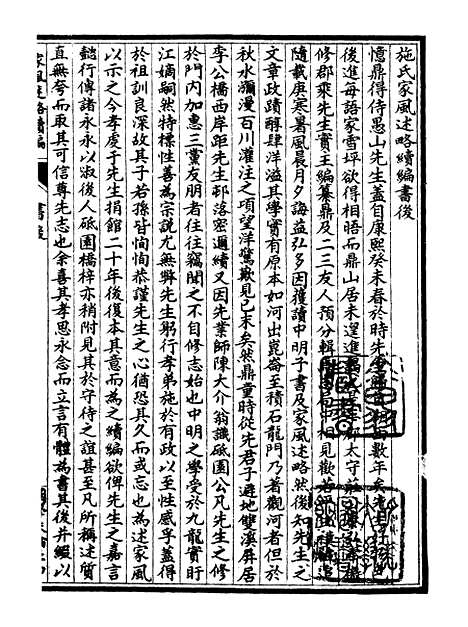 施氏家風述略續編書後
憶鼎得侍愚山先生蓋自康熙癸未春於時先生
後進每語家雪坪欲得相晤而鼎山居未遑進
修郡乘先生實主編纂鼎及二三友人預分輯
隨載庚寒暑風晨月夕誨益弘多因獲讀中明子書及家風述略然後知先生之
文章政蹟醇肆洋溢其學實有原本如河出崑崙至積石龍門乃著觀河者但於
秋水瀰漫百川灌注之頃望洋驚歎見已末矣然鼎童時從先君子避地雙溪屏居
李公橋西岸距先生邨落密邇續又因先業師陳大介翁識砥園公凡先生之修
於門內加惠三黨友朋者往往竊聞之不自修志始也中明之學受於九龍實盱
江嫡嗣然特標性善為宗說尤無弊先生躬行孝弟施於有政以至性感孚蓋得
於祖訓良深故其子若孫皆恂恂恭謹先生之心猶恐其久而或忘也為述家風
以示之今孝虔于先生捐館二十年後復本其意而為之續編欲俾先生之嘉言
懿行傳諸永永以淑後人砥園橋梓亦稍附見其於守待之誼甚至凡所稱述質
直無夸而取其可信尊先志也余喜其孝思永念而立言有體為書其後并綴以
家風述略續編
書後